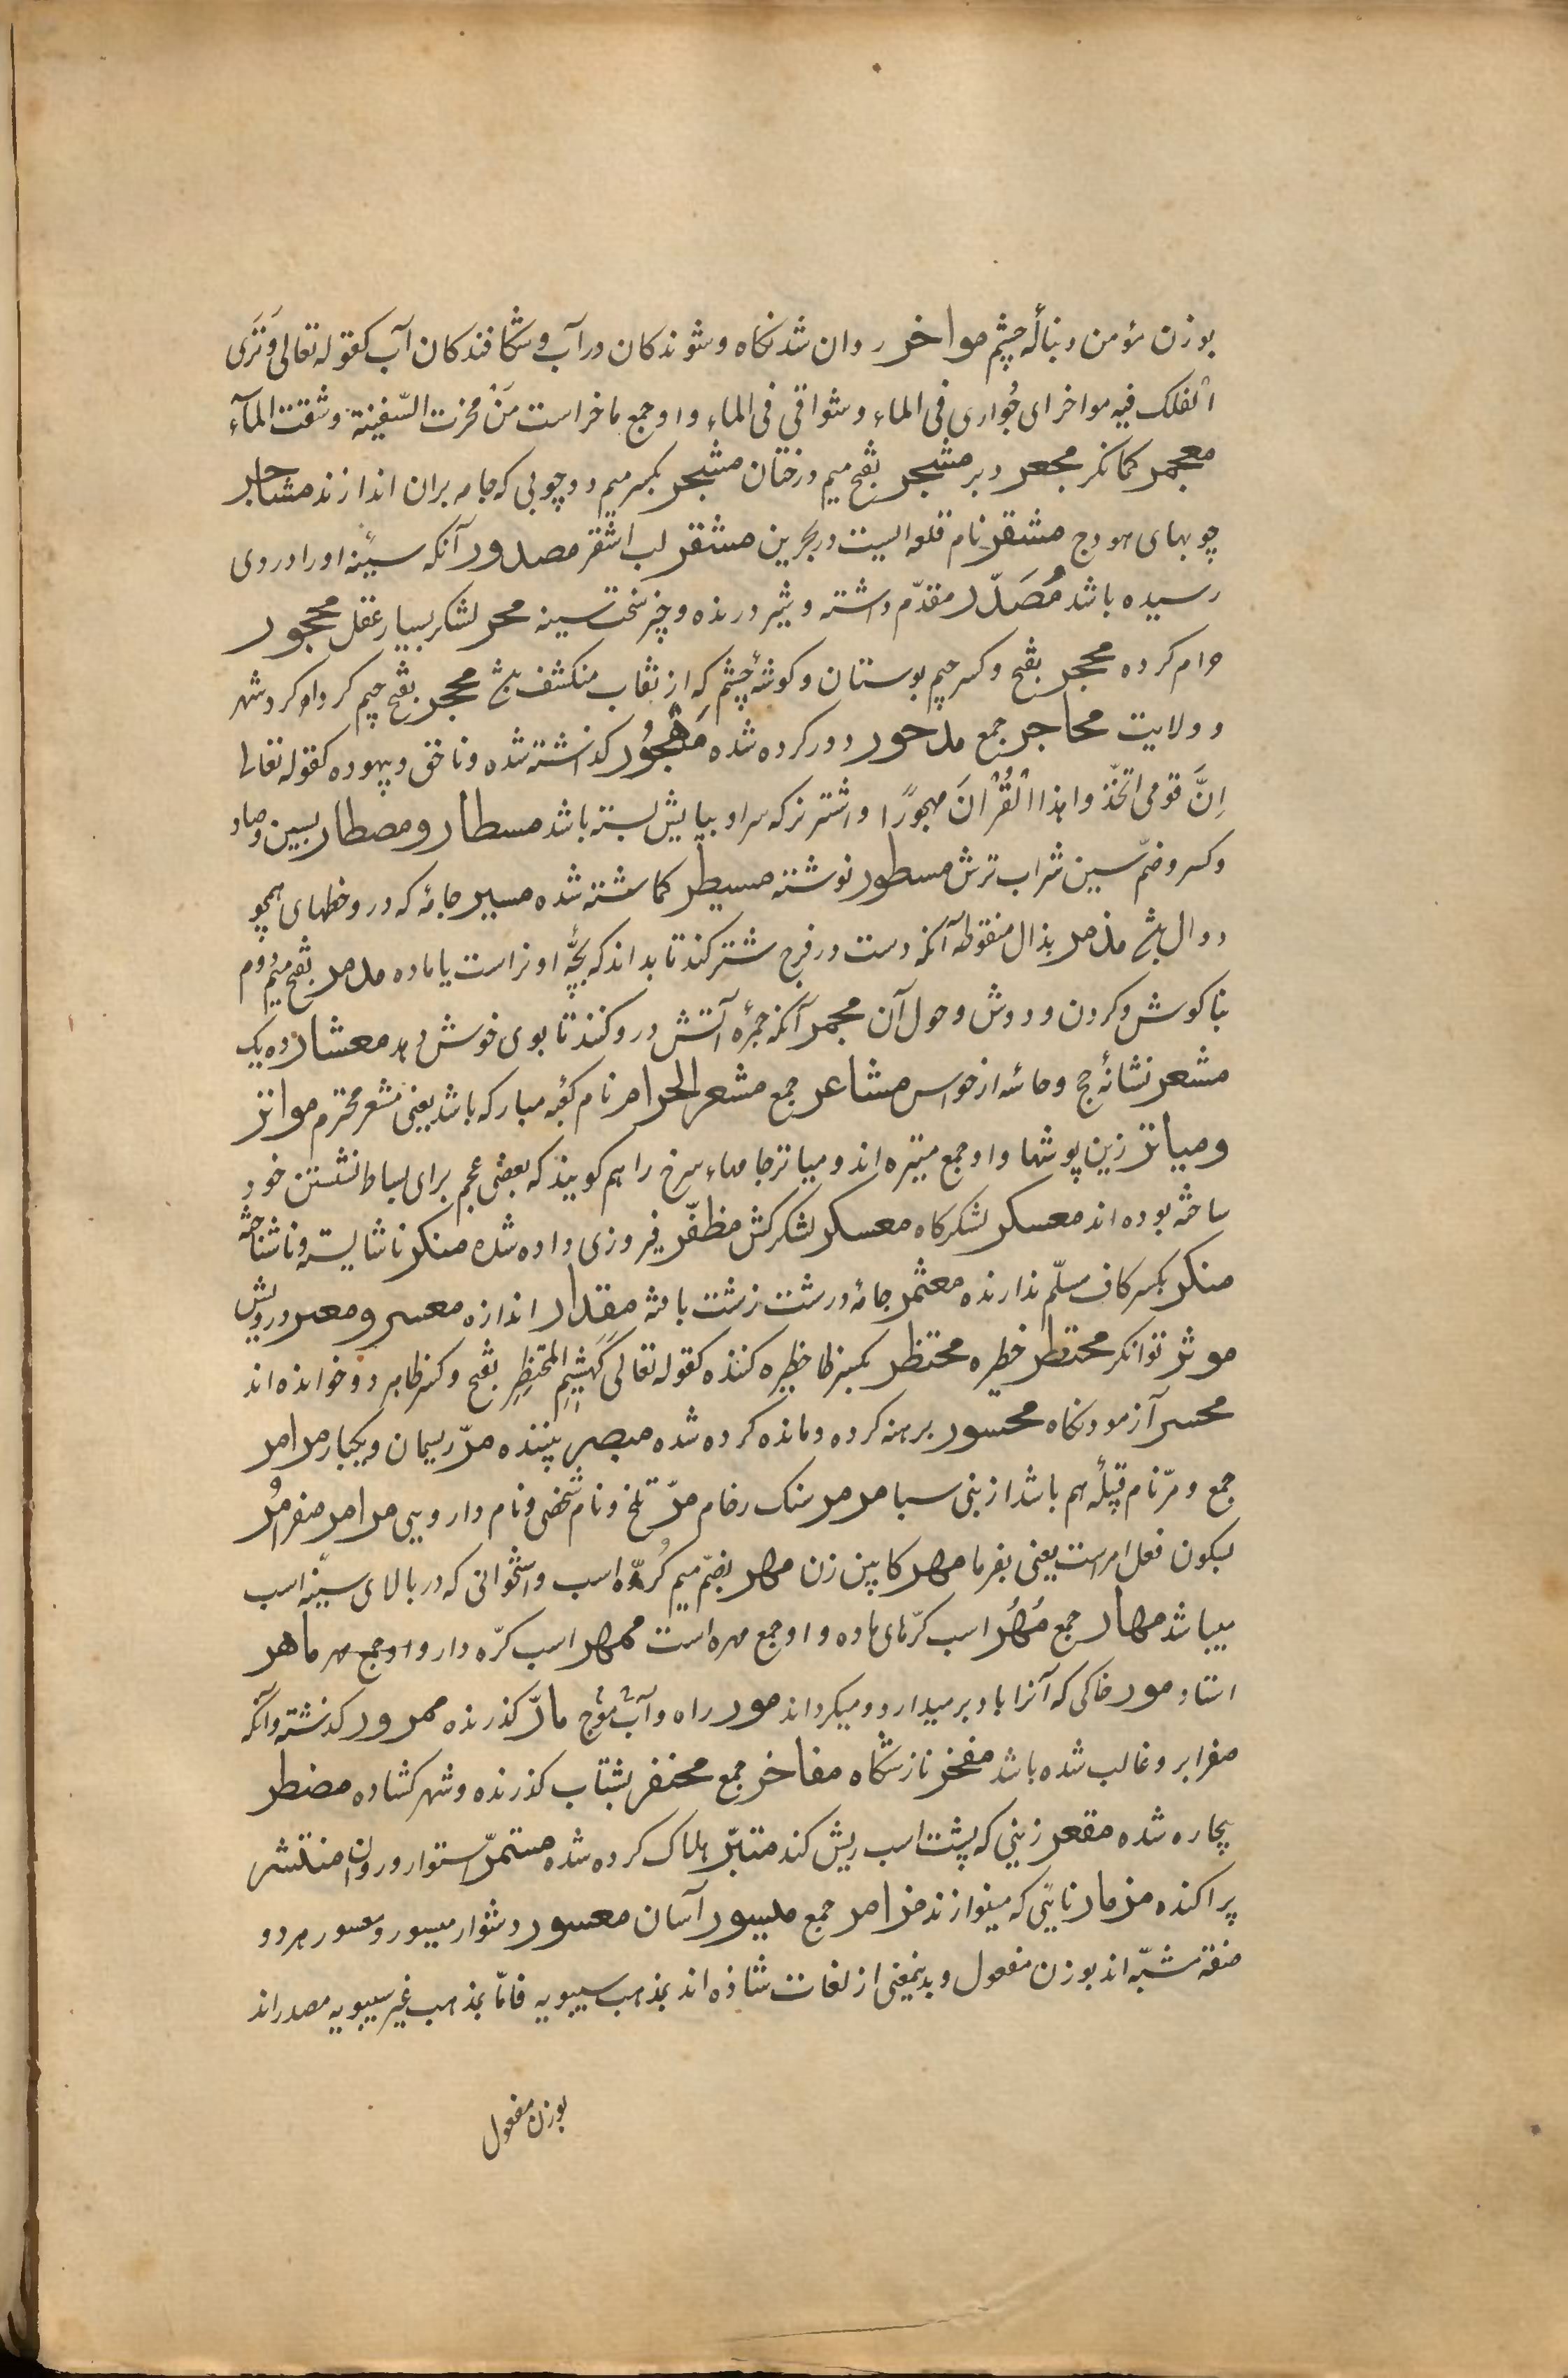 بوزن مؤمن دنبالهٔ چشم مواخر روان شدنکاه وشوندکان درآب وشکافندکان آب کقوله تعالی وَتَرَی
الْفلک فیه مواخر ای جُواری فی الماء وشواقی فی الماء واو جمع ماخر است مَنْ مخرت السّفینة وشقت المآء
معجر کمانکر مجعر دبر مشجر بفتح میم درختان مشجر بکسر میم دوچوبی که جامه بران اندازند مشاجر
چوبهای هودج مشقر نام قلعه ایست در بحرین مشقر لب اشقر مصدور آنکه سینهٔ اورا دردی
رسیده باشد مُصَدّر مقدّم داشته وشیر درنده وچیز سخت سینه مجر لشکر بسیار عقل محجور
حرام کرده محجر بفتح وکسر جیم بوستان وکوشهٔ چشم که از نقاب منکشف بشد محجر بفتح جیم کرداو کرد شهر
وولایت محاجر جمع مدحور دور کرده شده مَهْجُور کذاشته شده وناحق وبیهوده کقوله تعالی
اِنَّ قومی اتّخذ واهذا الْقُرْانَ مهجورًا واشتر نرکه سراو بپایش بسته باشد مسطار ومصطار بسین وصاد
وکسر وضمّ سین شراب ترش مسطور نوشته مسیطر کماشته شده مسیر جامهٔ که درو خطهای همچو
دوال بشد مذمر بذال منقوطه آنکه دست در فرج شتر کند تا بداند که بچّهٔ او نر است یا ماده مذمر بفتح میم دُوم
بناکوش وکردن ودوش وحول آن مجمر آنکه جمرهٔ آتش درو کنند تا بوی خوش دهد معشار ده یک
مشعر نشانهٔ حج وحاسّه از حواس مشاعر جمع مشعر الحرامر نام کعبه مبارکه باشد یعنی مشعر محترم مواثر
ومیاثر زین پوشها واو جمع میثره اند ومیاثر جامهاء سرخ را هم کویند که بعضی عجم برای بساط نشستن خود
ساخته بوده اند معسکر لشکرکاه معسکر لشکرکش مظفّر فیروزی داده شده منکر ناشایسته وناشناخته
منکر بکسر کاف مسلّم ندارنده معثمر جامهٔ درشت زشت بافته مقدار اندازه معسر ومعر درویش
موثر توانکر محتظر خطیره محتظر بکسر ظا خظیره کننده کقوله تعالی کَهَشِیْمِ الْمُحْتَظِرِ بفتح وکسر ظا هر دو خوانده اند
محسر آزمودنکاه محسور برهنه کرده ومانده کرده شده مبصر بیننده مرّ ریسمان ویکبار مرامر
جمع ومرّ نام قبیلهٔ هم باشد از بنی سبا مرمر سنک رخام مرّ تلخ ونام شخصی ونام دارویی مرامر صفر مُر
بسکون فعل امر است یعنی بفرما مهر کابین زن مهر بضمّ میم کُرّهٔ اسب واستخوانی که در بالای سینهٔ اسب
میباشد مهار جمع مُهُر اسب کرّهای ماده واو جمع مهره است ممهر اسب کرّه دار واو جمع مهر ماهر
استاد مور خاکی که آنرا باد بر میدارد ومیکرداند مور راه وآب موّج مارّ کذرنده ممرور کذشته وآنکه
صفرا برو غالب شده باشد مفخر نازشکاه مفاخر جمع محنفر بشتاب کذرنده وشهر کشاده مضطر
بیچاره شده مقعر زینی که پشت اسب ریش کند متبّر هلاک کرده شده مستمرّ استوار وروان منتشر
پراکنده مزمار نایی که مینوازند مزامر جمع میسور آسان معسور دشوار میسور ومعسور هر دو
صفة مشبّه اند بوزن مفعول وبدینمعنی از لغات شاذه اند بمذهب سیبویه فامّا بمذهب غیر سیبویه مصدراند
بوزن مفعول